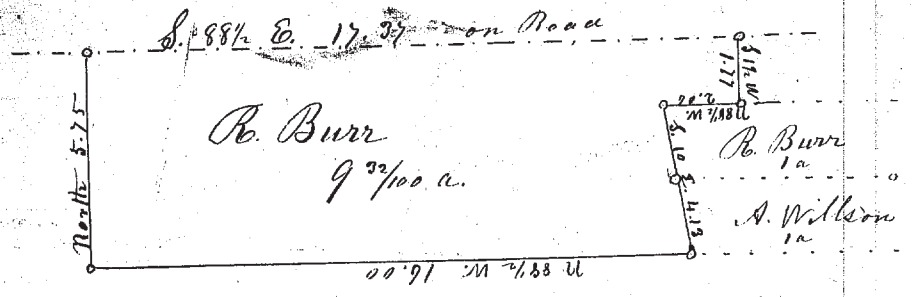 S. 88½ E. 17.37 on Road
North 5.75
R. Burr
9 32/100 a.
S 1½ W
1.77
N 88½ W.
2.02
S. 10 E. 4.13
R. Burr
1a
A. Willson
1a
N 88½ W. 16.00